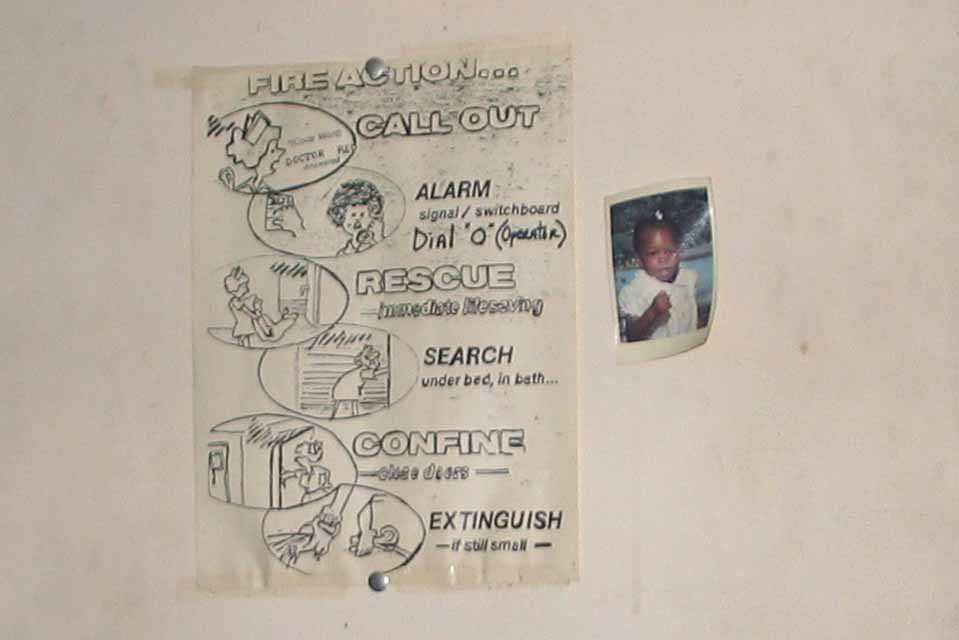 FIRE ACTION...
CALL OUT
DOCTOR
ALARM
signal / switchboard
Dial "O" (Operator)
RESCUE
—immediate lifesaving
SEARCH
under bed, in bath...
CONFINE
—close doors—
EXTINGUISH
—if still small—